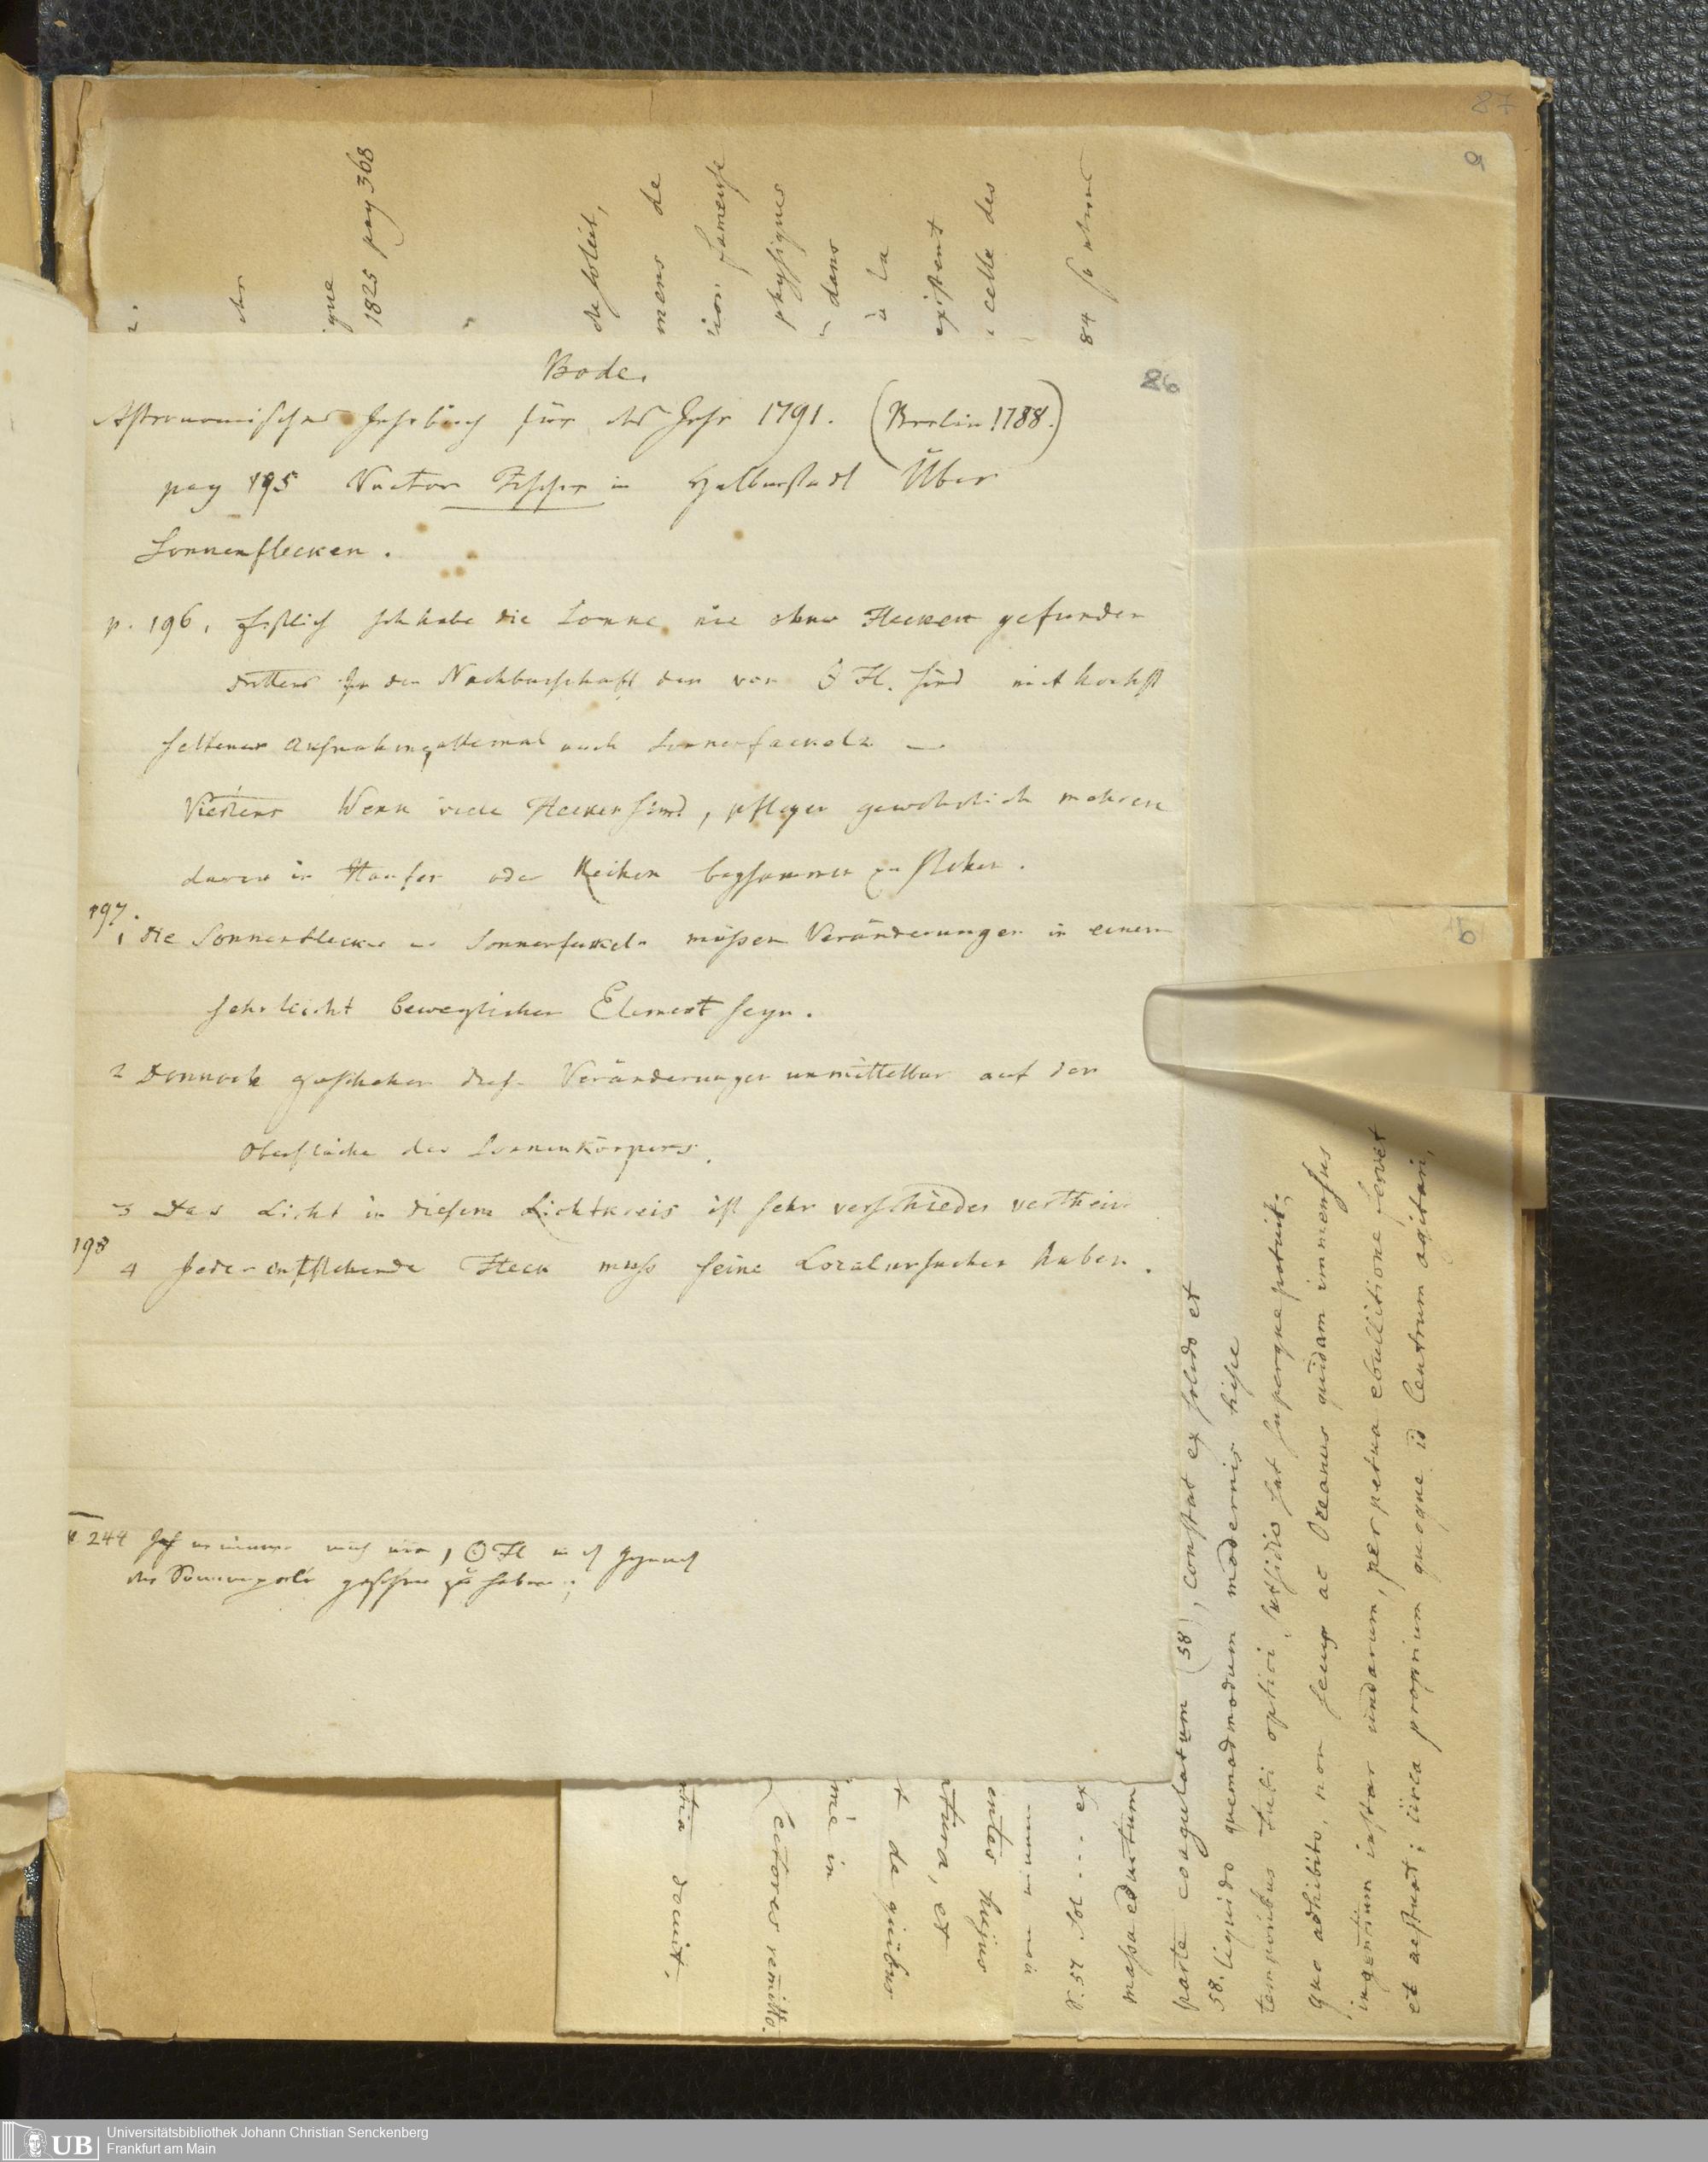 87
9
1825 pag 368
que
mens de
physiques
dans
à la
existent
celle des
84
Bode.
86
Astronomisches Jahrbuch für das Jahr 1791. (Berlin 1788.)
pag 195 Rector Fischer in Halberstadt Über
Sonnenflecken.
p. 196. Ich habe die Sonne nie ohne Flecken gefunden
drittens In der Nachbarschaft der von ☉ Fl. sind mit höchst
seltener Ausnahme allemal auch Sonnenfackeln —
Viertens Wenn viele Flecken sind, pflegen gewöhnlich mehrere
davon in Haufen oder Reihen beysammen zu stehen.
197.
1 Die Sonnenflecken u Sonnenfackeln müßen Veränderungen in einem
sehr leicht beweglichen Element seyn.
2 Dennoch geschehen diese Veränderungen unmittelbar auf der
Oberfläche des Sonnenkörpers.
3 Das Licht in diesem Lichtkreis ist sehr verschieden
198
4 Jeder entstehende Fleck muss seine Localursachen haben.
244 Ich erinnere mich nie, ☉ Fl
der Sonnenpole gesehen zu haben;
6
docuit.
Lectores remitto.
in
de quibus
et
entes hujus
p. 57 Sol - - - ex
massa eductum
parte coagulatum (58), constat ex solido et
58. liquido quemadmodum modernis hisce
temporibus tubi optici subsidio sat superque patuit,
quo adhibito, non secus ac Oceanus quidam immensus
ingentium instar undarum, perpetua ebullitione fervet
et aestuat; circa proprium quoque id Centrum agitari,
UB
Universitätsbibliothek Johann Christian Senckenberg
Frankfurt am Main